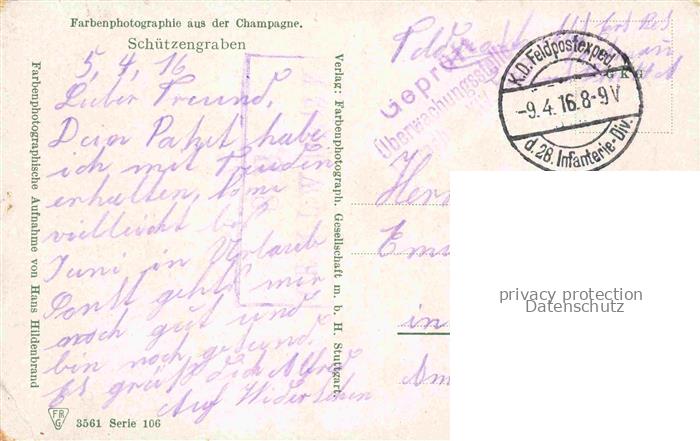 Farbenphotographie aus der Champagne.
Schützengraben
5, 4, 16
Lieber Freund.
Dein Paket habe
ich mit Freuden
erhalten,
vielleicht bis
Juni in Urlaub
Sonst geht mir
noch gut und
bin noch gesund.
Es grüßt dich Alfred
Auf Wiedersehen
Farbenphotographische Aufnahme von Hans Hildenbrand
Verlag: Farbenphotograph. Gesellschaft m. b. H. Stuttgart.
FRG
3561 Serie 106
Geprüft
Überwachungsstelle
K.D. Feldpostexped.
-9.4.16.8-9V
d. 28. Infanterie-Div.
Herr
in
privacy protection
Datenschutz